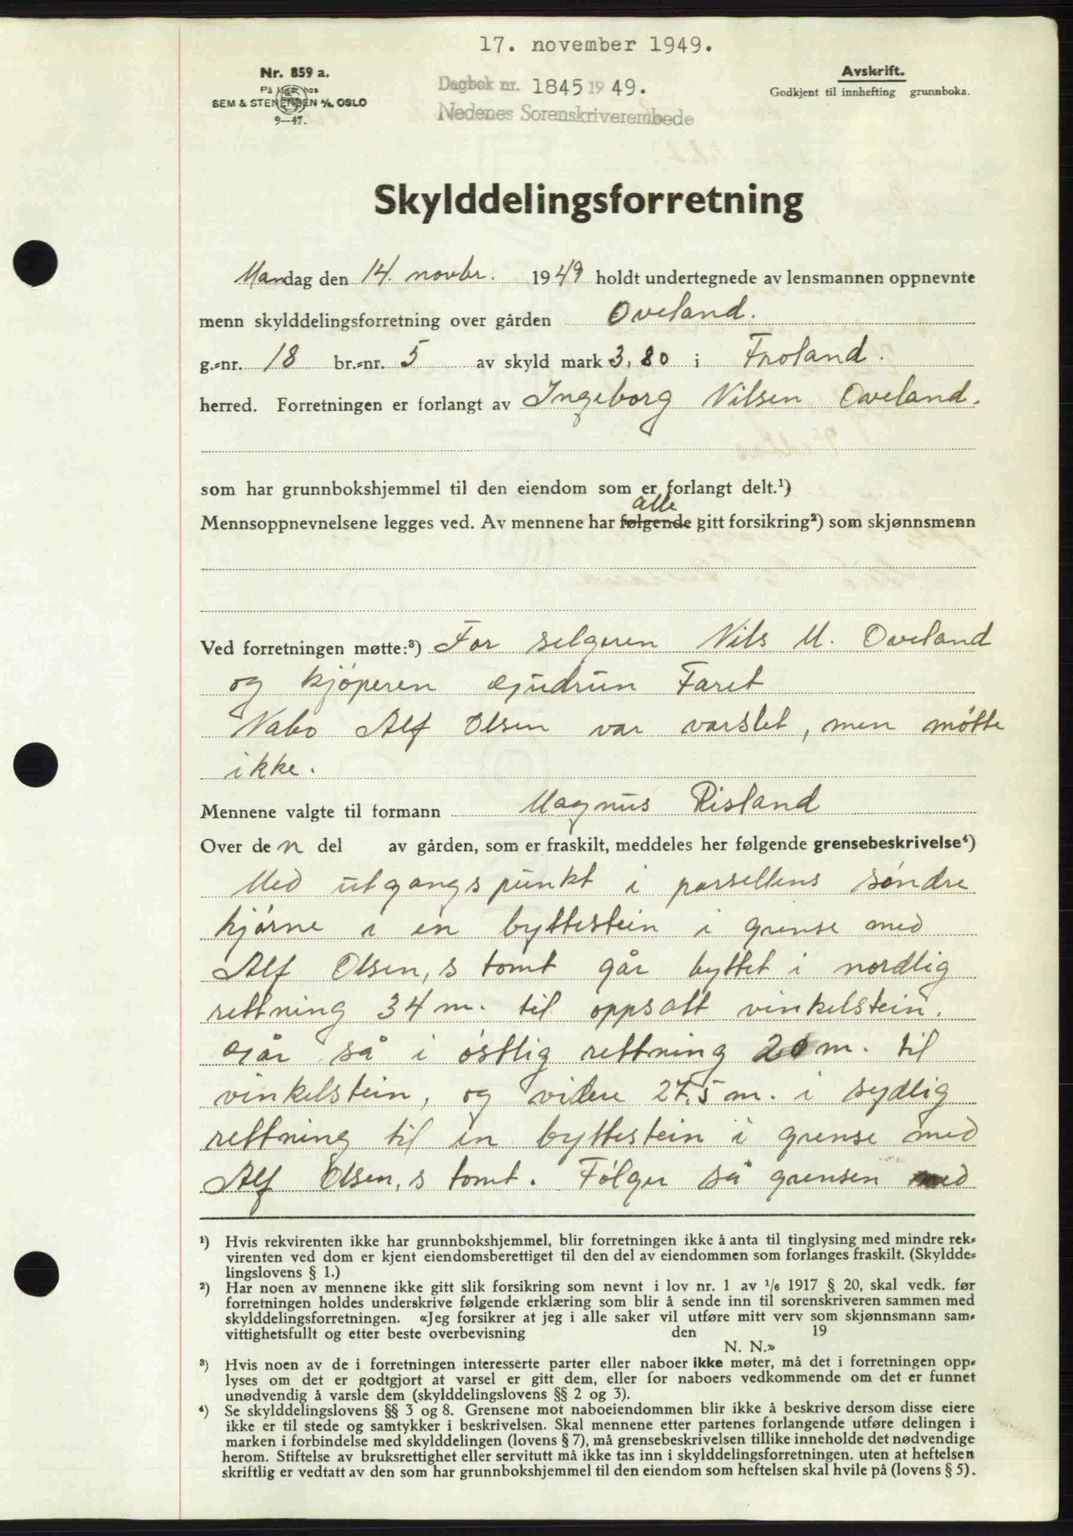 17. november 1949.
Nr. 859 a.
SEM & STENERSEN A/S, OSLO
9—47.
Dagbok nr. 1845 1949.
Nedenes Sorenskriverembede
Avskrift.
Godkjent til innhefting grunnboka.
Skylddelingsforretning
Mandag den 14. novbr. 1949 holdt undertegnede av lensmannen oppnevnte
menn skylddelingsforretning over gården Oveland.
g.-nr. 18 br.-nr. 5 av skyld mark 3,80 i Froland.
herred. Forretningen er forlangt av Ingeborg Nilsen Oveland.
som har grunnbokshjemmel til den eiendom som er forlangt delt.¹)
alle
Mennsoppnevnelsene legges ved. Av mennene har følgende gitt forsikring²) som skjønnsmenn
Ved forretningen møtte:³) For selgeren Nils M. Oveland
og kjøperen Gudrun Faret
Nabo Alf Olsen var varslet, men møtte
ikke.
Mennene valgte til formann Magnus Risland
Over den del av gården, som er fraskilt, meddeles her følgende grensebeskrivelse⁴)
Med utgangspunkt i parsellens søndre
hjørne i en byttestein i grense med
Alf Olsen,s tomt går byttet i nordlig
rettning 34 m. til oppsatt vinkelstein.
Går så i östlig rettning 20 m. til
vinkelstein, og videre 27,5 m. i sydlig
rettning til en byttestein i grense med
Alf Olsen,s tomt. Følger så grensen med
¹) Hvis rekvirenten ikke har grunnbokshjemmel, blir forretningen ikke å anta til tinglysing med mindre rek-
virenten ved dom er kjent eiendomsberettiget til den del av eiendommen som forlanges fraskilt. (Skyldde-
lingslovens § 1.)
²) Har noen av mennene ikke gitt slik forsikring som nevnt i lov nr. 1 av 1/6 1917 § 20, skal vedk. før
forretningen holdes underskrive følgende erklæring som blir å sende inn til sorenskriveren sammen med
skylddelingsforretningen. «Jeg forsikrer at jeg i alle saker vil utføre mitt verv som skjønnsmann sam-
vittighetsfullt og etter beste overbevisning den 19
N. N.»
³) Hvis noen av de i forretningen interesserte parter eller naboer ikke møter, må det i forretningen opp-
lyses om det er godtgjort at varsel er gitt dem, eller for naboers vedkommende om det er funnet
unødvendig å varsle dem (skylddelingslovens §§ 2 og 3).
⁴) Se skylddelingslovens §§ 3 og 8. Grensene mot naboeiendommen blir ikke å beskrive dersom disse eiere
ikke er til stede og samtykker i beskrivelsen. Skal mennene etter partenes forlangende utføre delingen i
marken i forbindelse med skylddelingen (lovens § 7), må grensebeskrivelsen tillike inneholde det nødvendige
herom. Stiftelse av bruksrettighet eller servitutt må ikke tas inn i skylddelingsforretningen, uten at heftelsen
skriftlig er vedtatt av den som har grunnbokshjemmel til den eiendom som heftelsen skal hvile på (lovens § 5).